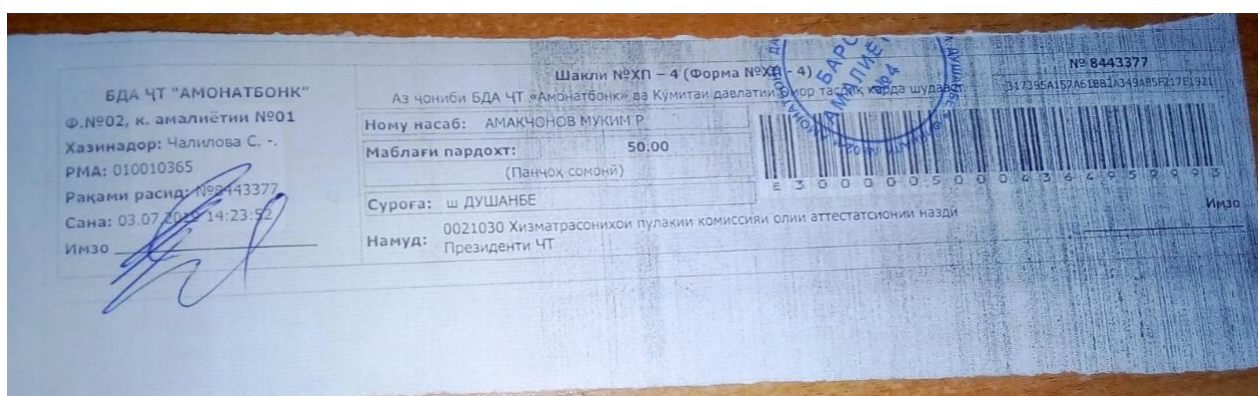 БДА ҶТ "АМОНАТБОНК"
Ф.№02, к. амалиётии №01
Хазинадор: Чалилова С. -.
РМА: 010010365
Рақами расид: №8443377
Сана: 03.07.2019 14:23:52
Имзо
Шакли №ХП – 4 (Форма №ХП - 4)
№ 8443377
Аз ҷониби БДА ҶТ «Амонатбонк» ва Кумитаи давлатии омор тасдиқ карда шудааст
Ному насаб: АМАКЧОНОВ МУКИМ Р
Маблағи пардохт: 50.00
(Панҷоҳ сомонӣ)
Суроға: ш ДУШАНБЕ
Намуд: 0021030 Хизматрасонихои пулакии комиссияи олии аттестатсионии назди
Президенти ҶТ
Имзо
БАРО
АМАЛИЁТ
№4